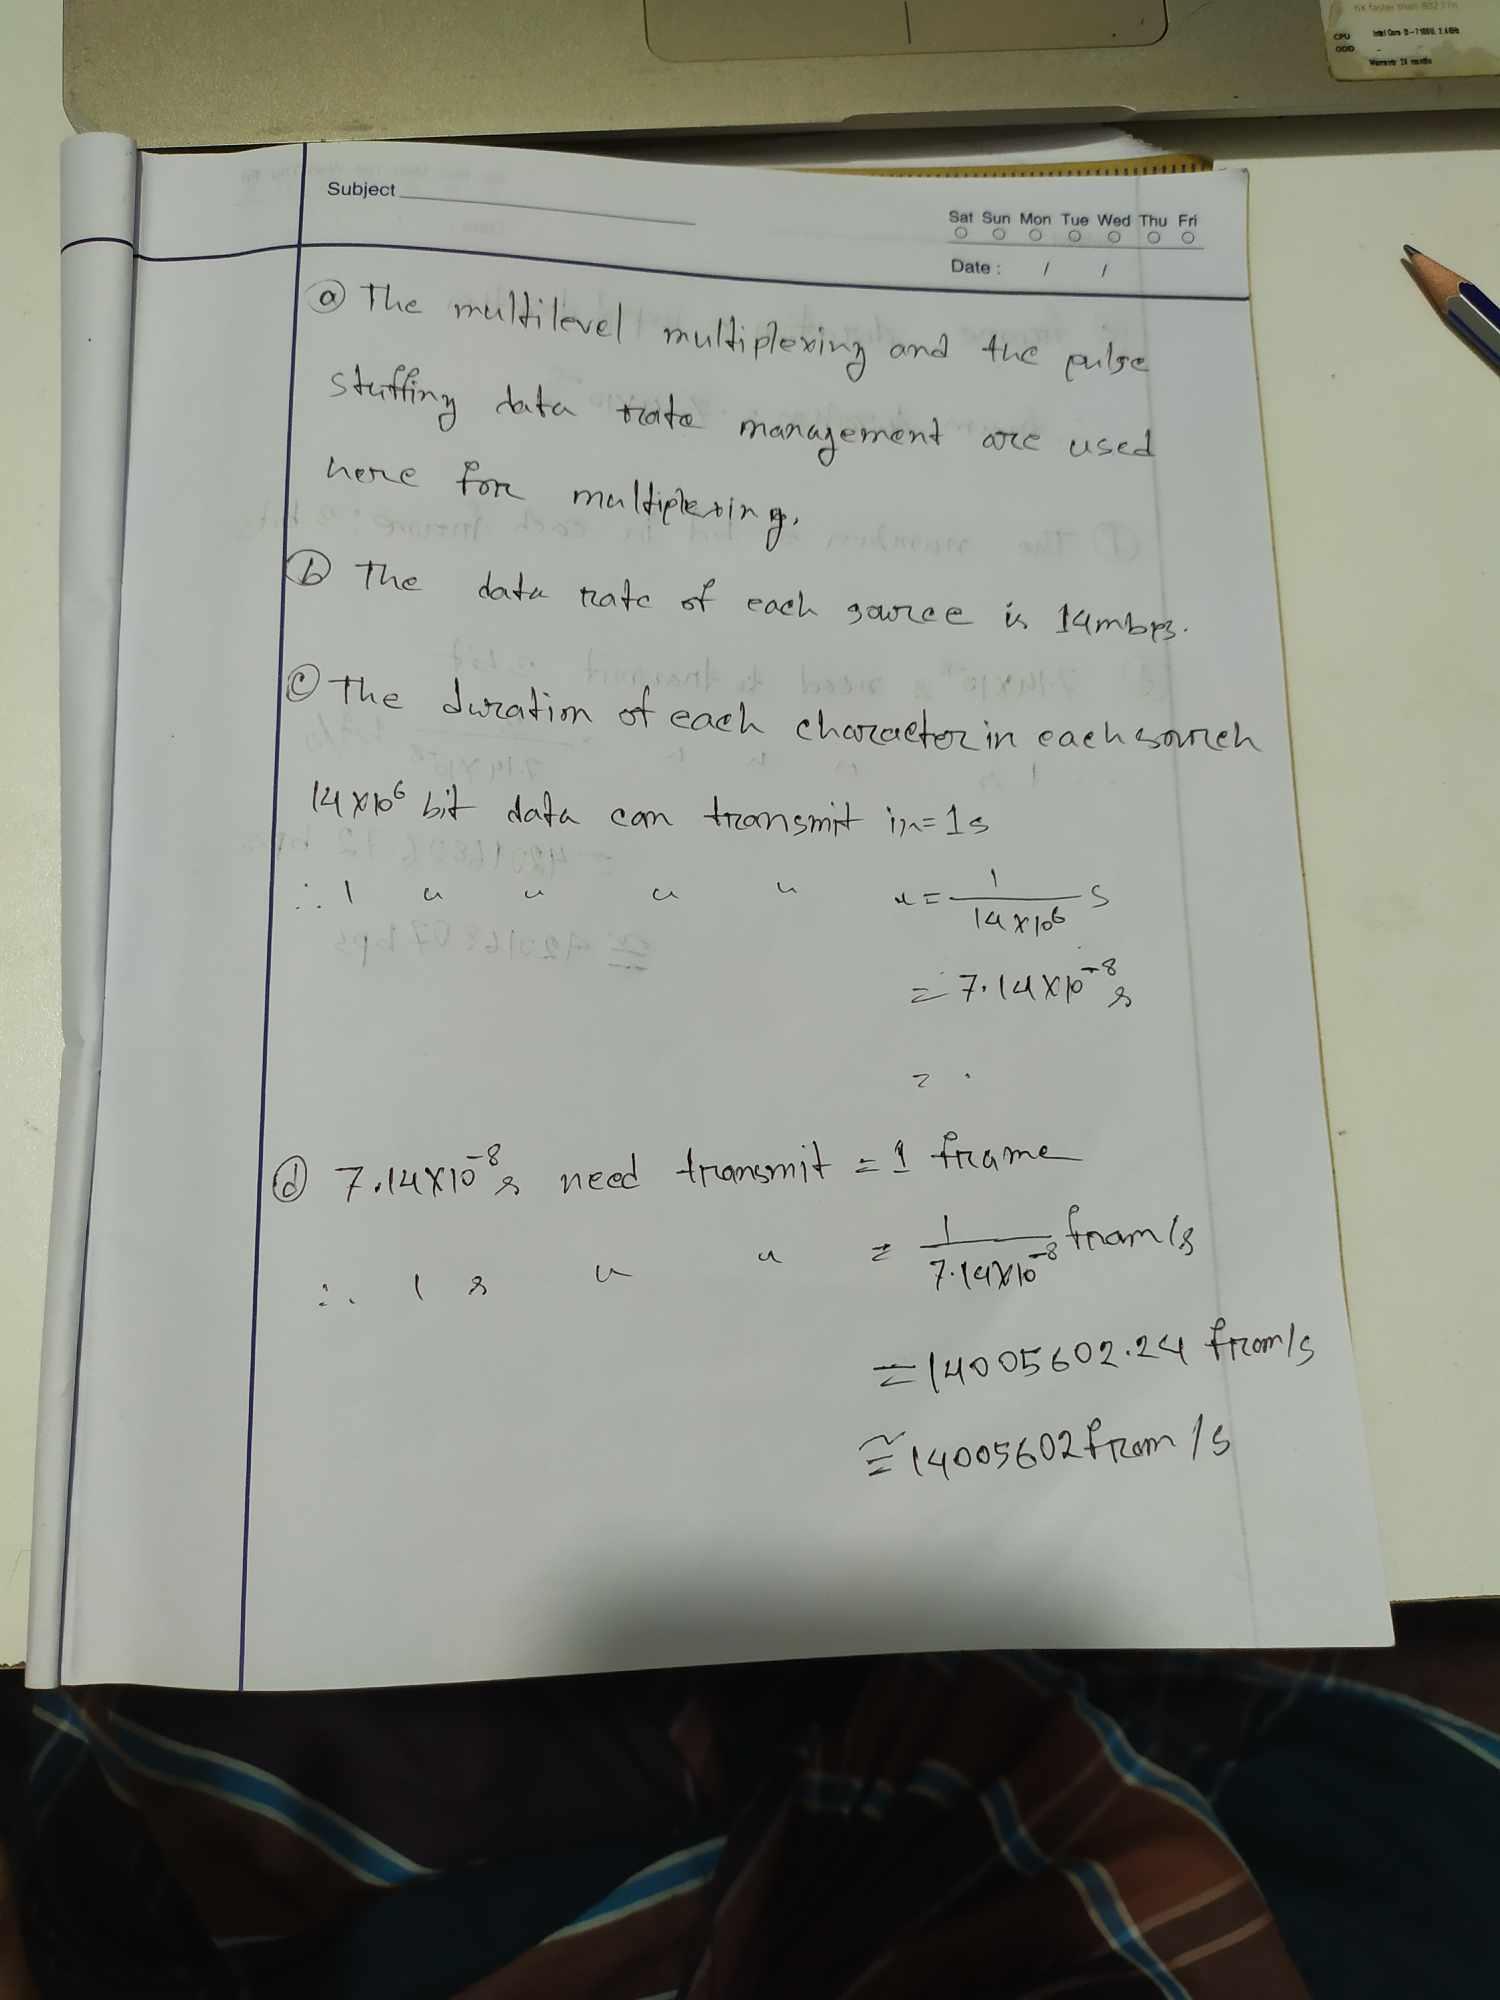 6X faster than 802.11n
CPU Intel Core i3-7100U, 2.4GHz
ODD -
Warranty 24 months
Subject
Sat Sun Mon Tue Wed Thu Fri
Date : / /
ⓐ The multilevel multiplexing and the pulse
stuffing data rate management are used
here for multiplexing.
ⓑ The data rate of each source is 14mbps.
ⓒ The duration of each character in each sourch
14×10⁶ bit data can transmit in = 1s
∴ 1 " " " " " = 1/14×10⁶ s
= 7.14×10⁻⁸ s
= .
ⓓ 7.14×10⁻⁸ s need transmit = 1 frame
∴ 1 s " " = 1/7.14×10⁻⁸ fram/s
= 14005602.24 fram/s
≅ 14005602 fram/s